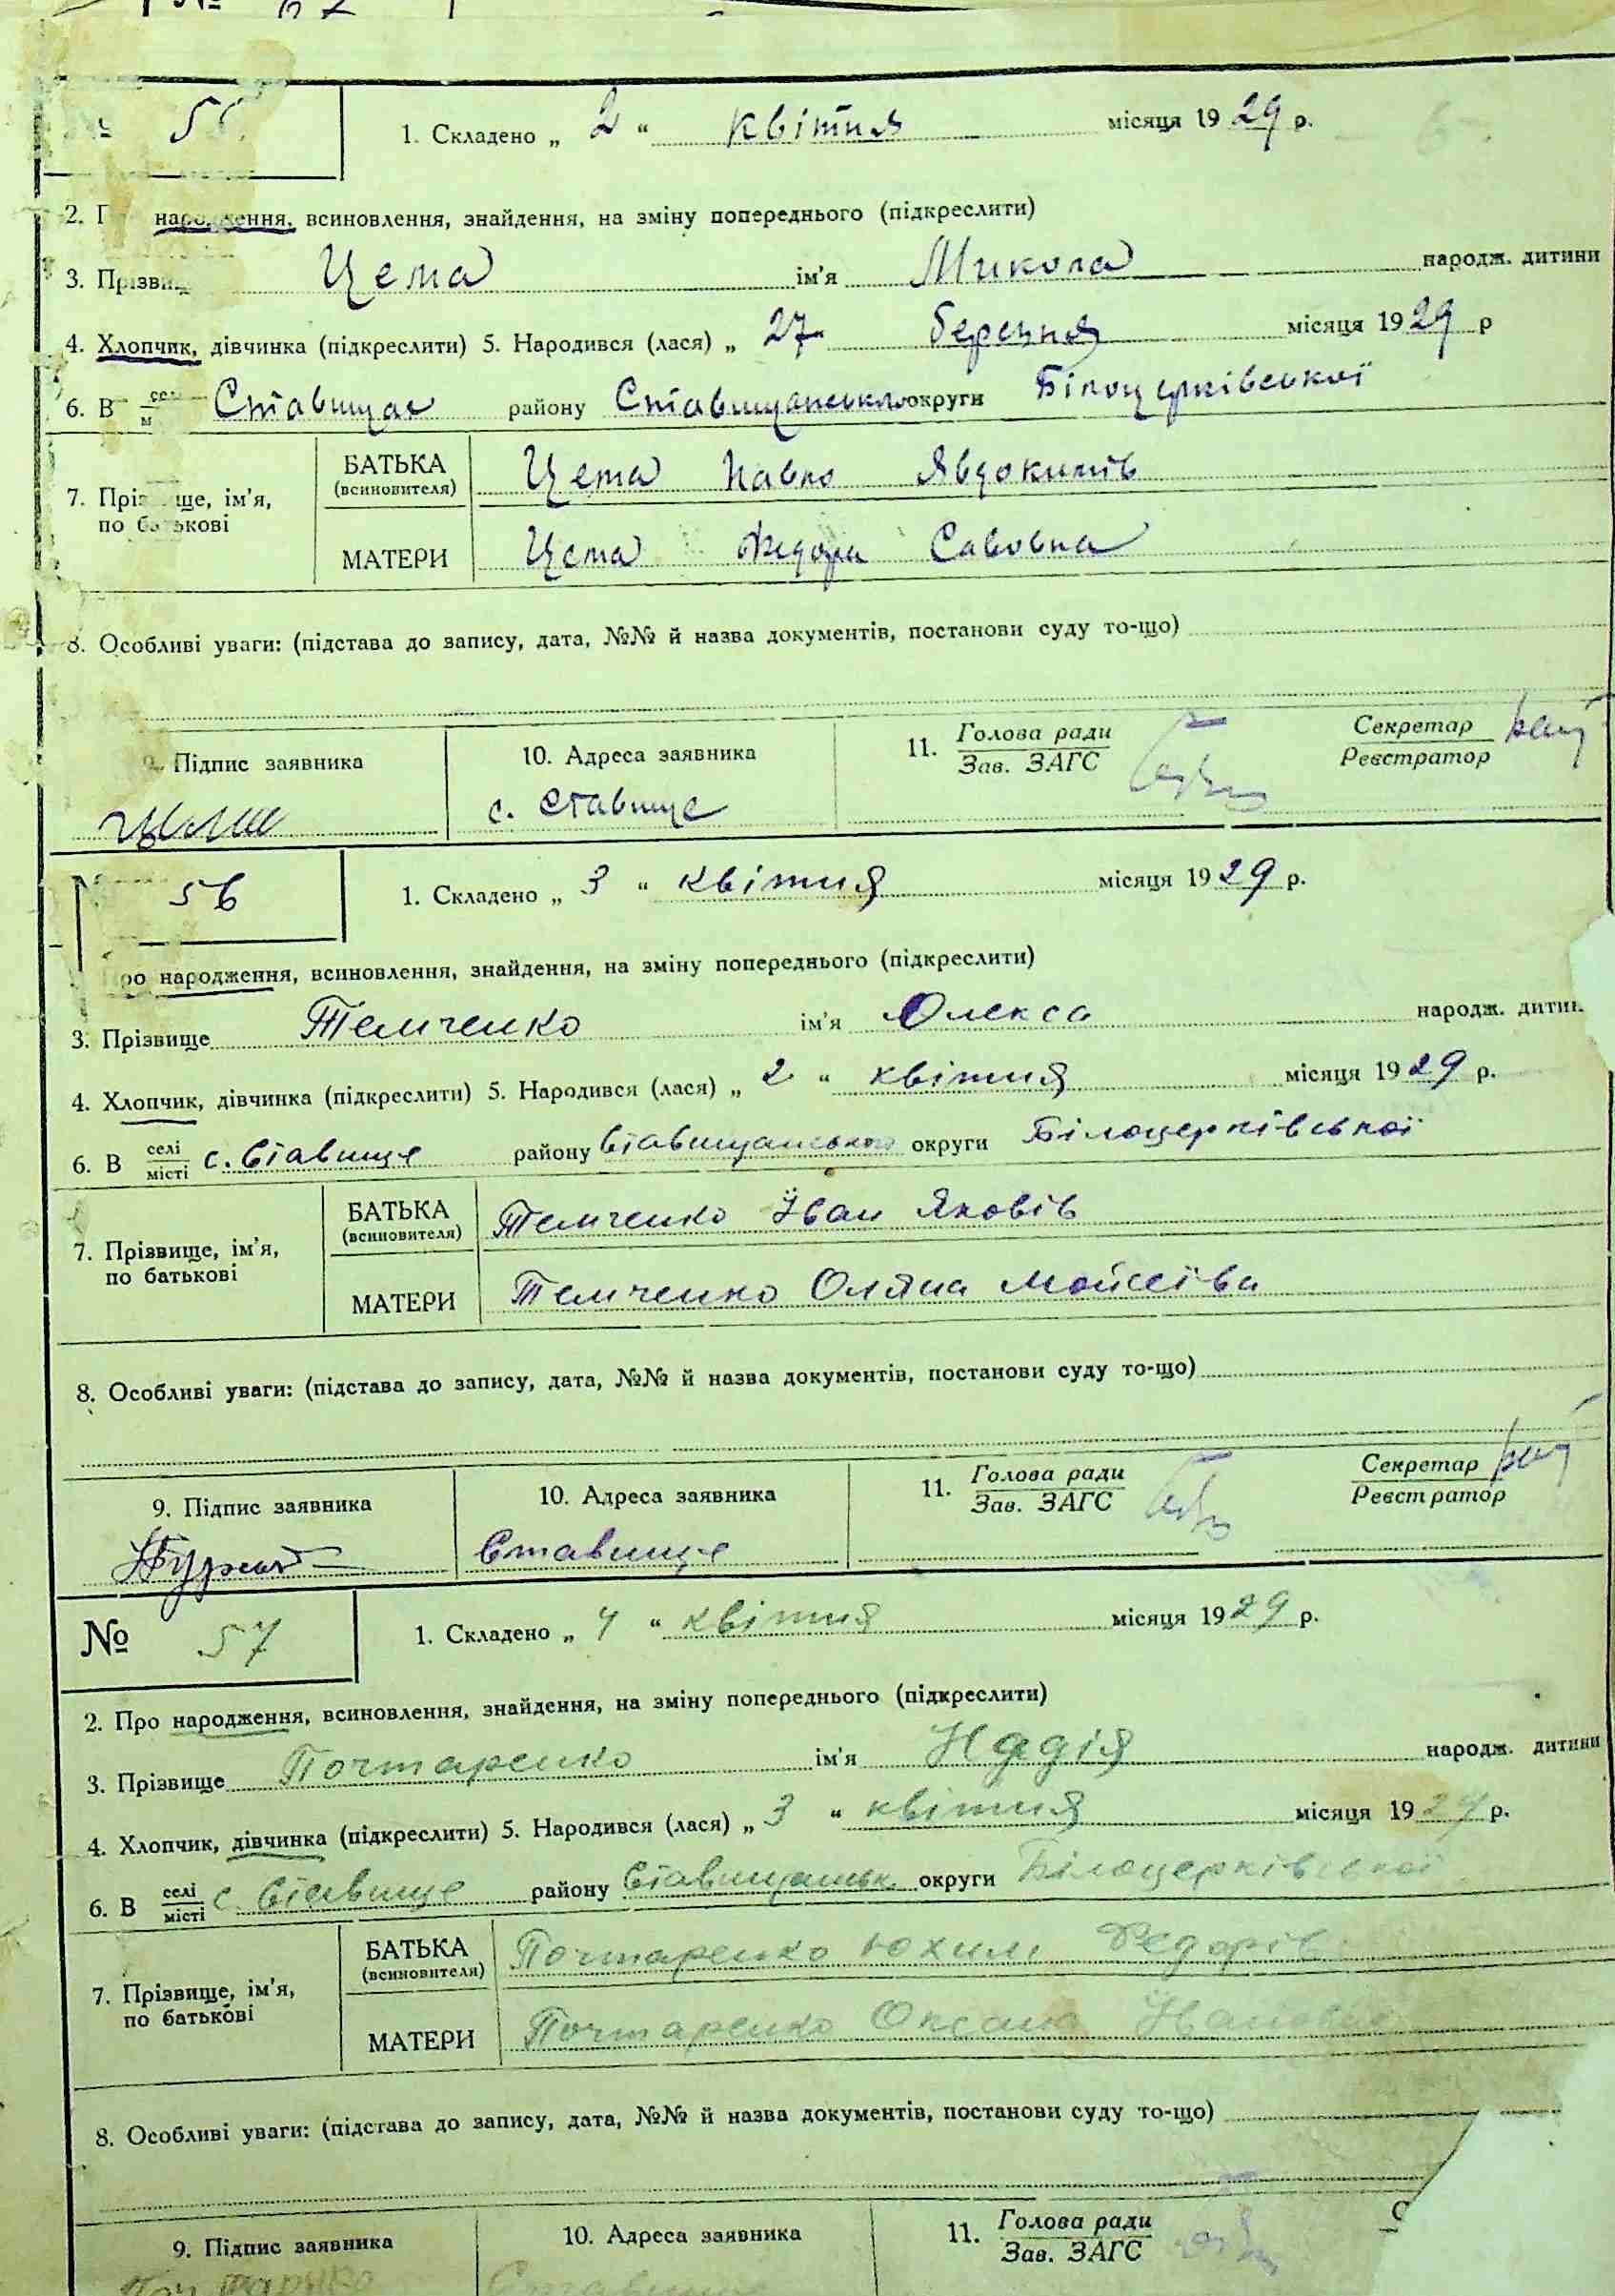 № 62
55
1. Складено „ 2 “ квітня місяця 1929 р.
2. народження, всиновлення, знайдення, на зміну попереднього (підкреслити)
3. Прізвище Цема ім'я Микола народж. дитини
4. Хлопчик, дівчинка (підкреслити) 5. Народився (лася) „ 27 березня місяця 1929 р
6. В Ставище району Ставищанського округи Білоцерківської
БАТЬКА
(всиновителя) Цема Павло Явдокимів
7. Прізвище, ім'я,
по батькові
МАТЕРИ Цема Федора Савовна
8. Особливі уваги: (підстава до запису, дата, №№ й назва документів, постанови суду то-що)
9. Підпис заявника 10. Адреса заявника 11. Голова ради Секретар
Зав. ЗАГС Реєстратор
Цема с. Ставище
56
1. Складено „ 3 “ квітня місяця 1929 р.
Про народження, всиновлення, знайдення, на зміну попереднього (підкреслити)
3. Прізвище Темченко ім'я Олекса народж. дитин
4. Хлопчик, дівчинка (підкреслити) 5. Народився (лася) „ 2 “ квітня місяця 1929 р.
6. В селі
місті с. Ставище району Ставищанського округи Білоцерківської
БАТЬКА
(всиновителя) Темченко Іван Яковів
7. Прізвище, ім'я,
по батькові
МАТЕРИ Темченко Оляна Мойсеїва
8. Особливі уваги: (підстава до запису, дата, №№ й назва документів, постанови суду то-що)
9. Підпис заявника 10. Адреса заявника 11. Голова ради Секретар
Зав. ЗАГС Реєстратор
Ставище
№ 57
1. Складено „ 4 “ квітня місяця 1929 р.
2. Про народження, всиновлення, знайдення, на зміну попереднього (підкреслити)
3. Прізвище Почтаренко ім'я Надія народж. дитини
4. Хлопчик, дівчинка (підкреслити) 5. Народився (лася) „ 3 “ квітня місяця 1929 р.
6. В селі
місті с Ставище району Ставищанськ. округи Білоцерківської
БАТЬКА
(всиновителя) Почтаренко Юхим Федорів
7. Прізвище, ім'я,
по батькові
МАТЕРИ Почтаренко Оксана Івановна
8. Особливі уваги: (підстава до запису, дата, №№ й назва документів, постанови суду то-що)
9. Підпис заявника 10. Адреса заявника 11. Голова ради
Зав. ЗАГС
Ставище